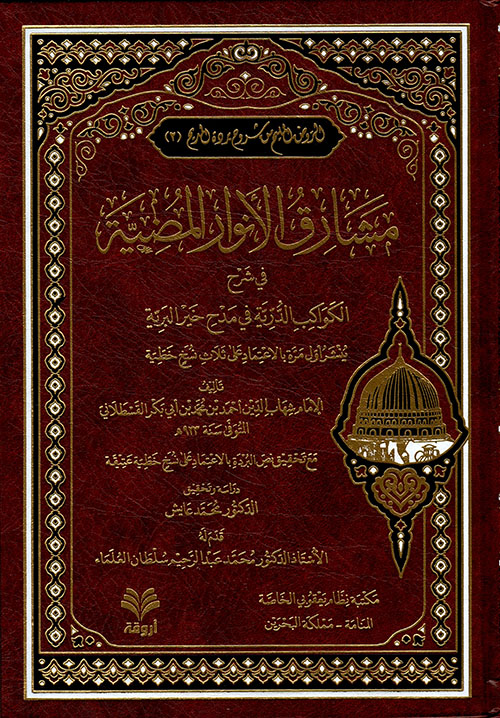 الروض المليح من شروح بردة المديح (٢)
مشارق الأنوار المضيّة
في شرح
الكواكب الدُّريّة في مدح خير البريّة
يُنشر أوّل مرّة بالاعتماد على ثلاث نُسخ خطيّة
تأليف
الإمام شهاب الدين أحمد بن محمد بن أبي بكر القسطلاني
المتوفى سنة ٩٢٣هـ
مع تحقيق نصّ البردة بالاعتماد على نُسخ خطية عتيقة
دراسة وتحقيق
الدكتور محمد عايش
قدّم له
الأستاذ الدكتور محمد عبد الرحيم سلطان العلماء
مكتبة نظام يعقوبي الخاصة
المنامة - مملكة البحرين
أروقة